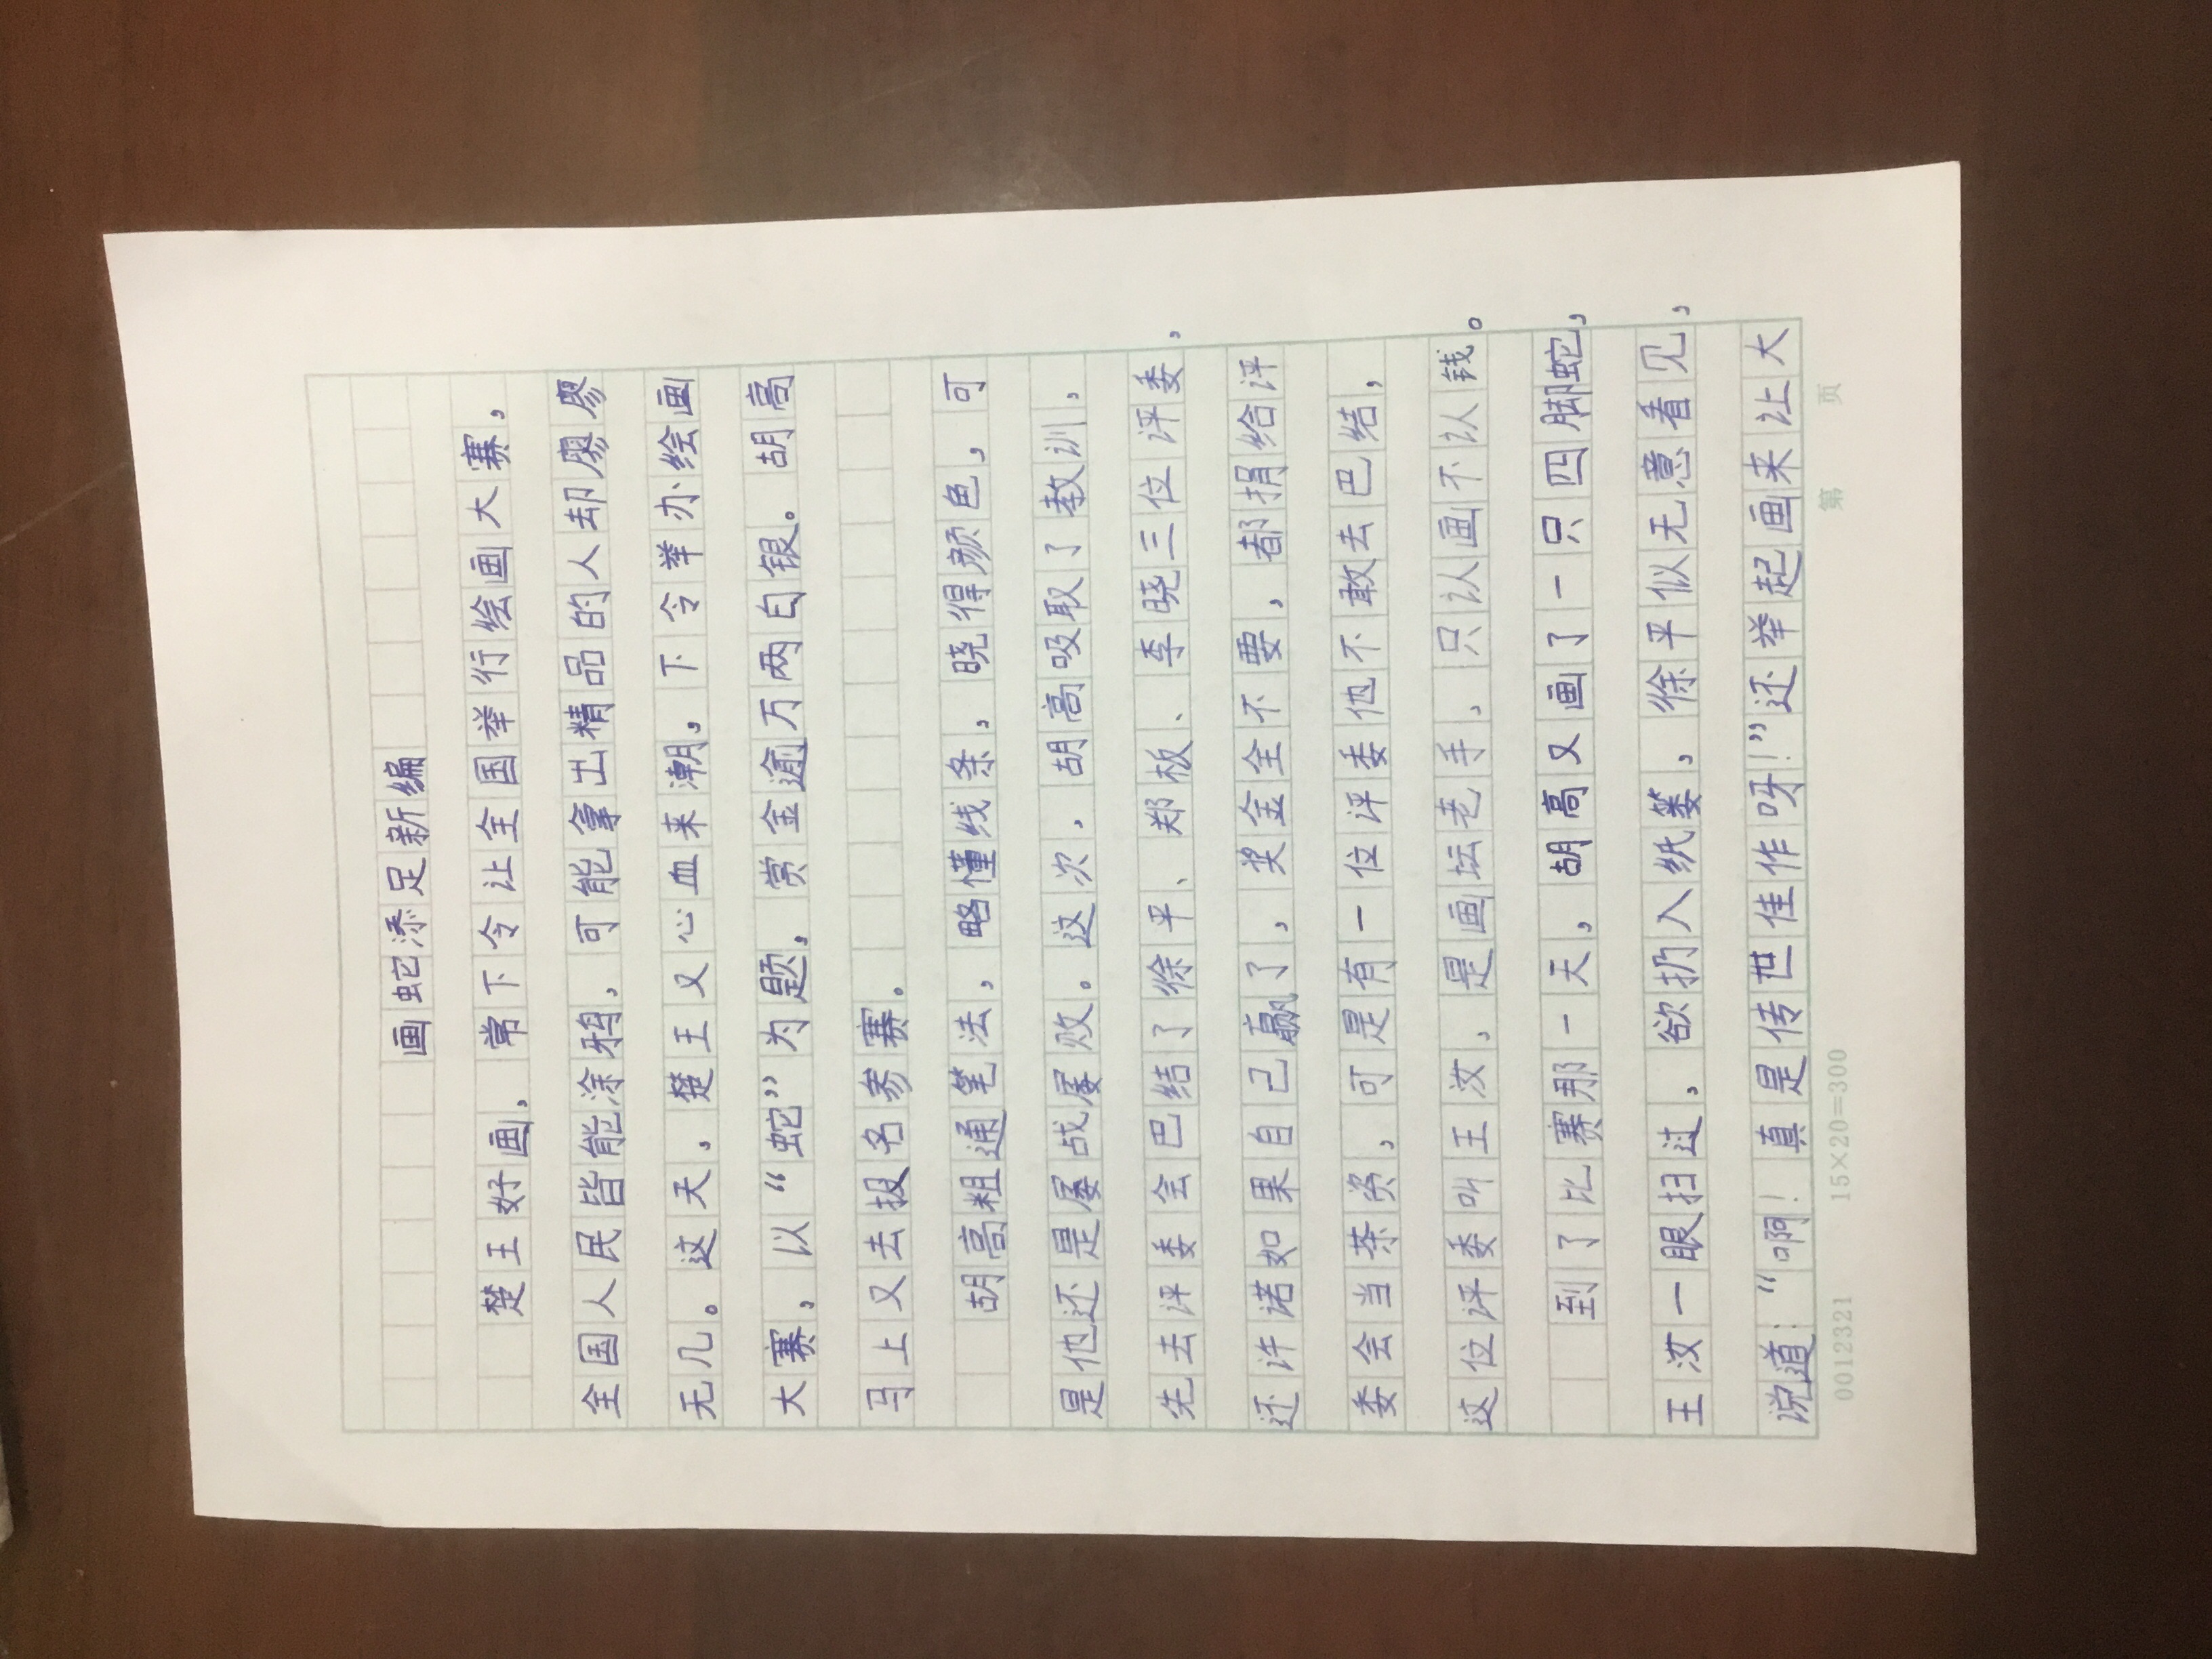 画蛇添足新编
楚王好画，常下令让全国举行绘画大赛，
全国人民皆能涂鸦，可能拿出精品的人却廖廖
无几。这天，楚王又心血来潮，下令举办绘画
大赛，以“蛇”为题，赏金逾万两白银。胡高
马上又去报名参赛。
胡高粗通笔法，略懂线条，晓得颜色，可
是他还是屡战屡败。这次，胡高吸取了教训，
先去评委会巴结了徐平、郑板、李晓三位评委，
还许诺如果自己赢了，奖金全不要，都捐给评
委会当茶资，可是有一位评委他不敢去巴结，
这位评委叫王汝，是画坛老手，只认画不认钱。
到了比赛那一天，胡高又画了一只四脚蛇，
王汝一眼扫过，欲扔入纸篓，徐平似无意看见，
说道：“啊！真是传世佳作呀！”还举起画来让大
0012321 15×20=300 第 页